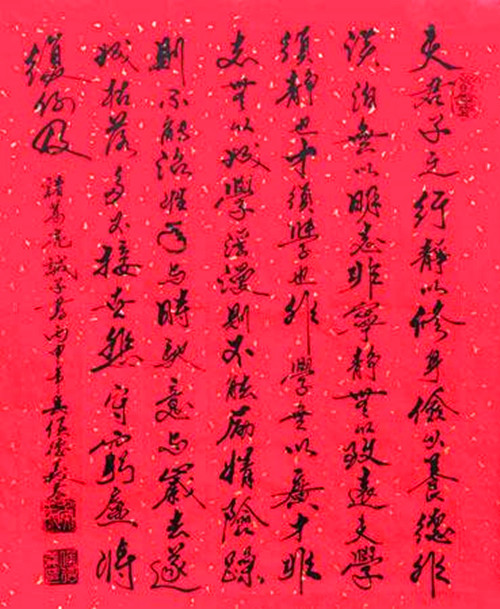 夫君子之行靜以修身儉以養德非
淡泊無以明志非寧靜無以致遠夫學
須靜也才須學也非學無以廣才非
志無以成學淫漫則不能勵精險躁
則不能治性年与時馳意与歲去遂
成枯落多不接世悲守窮廬將
復何及
諸葛亮誡子書丙申年